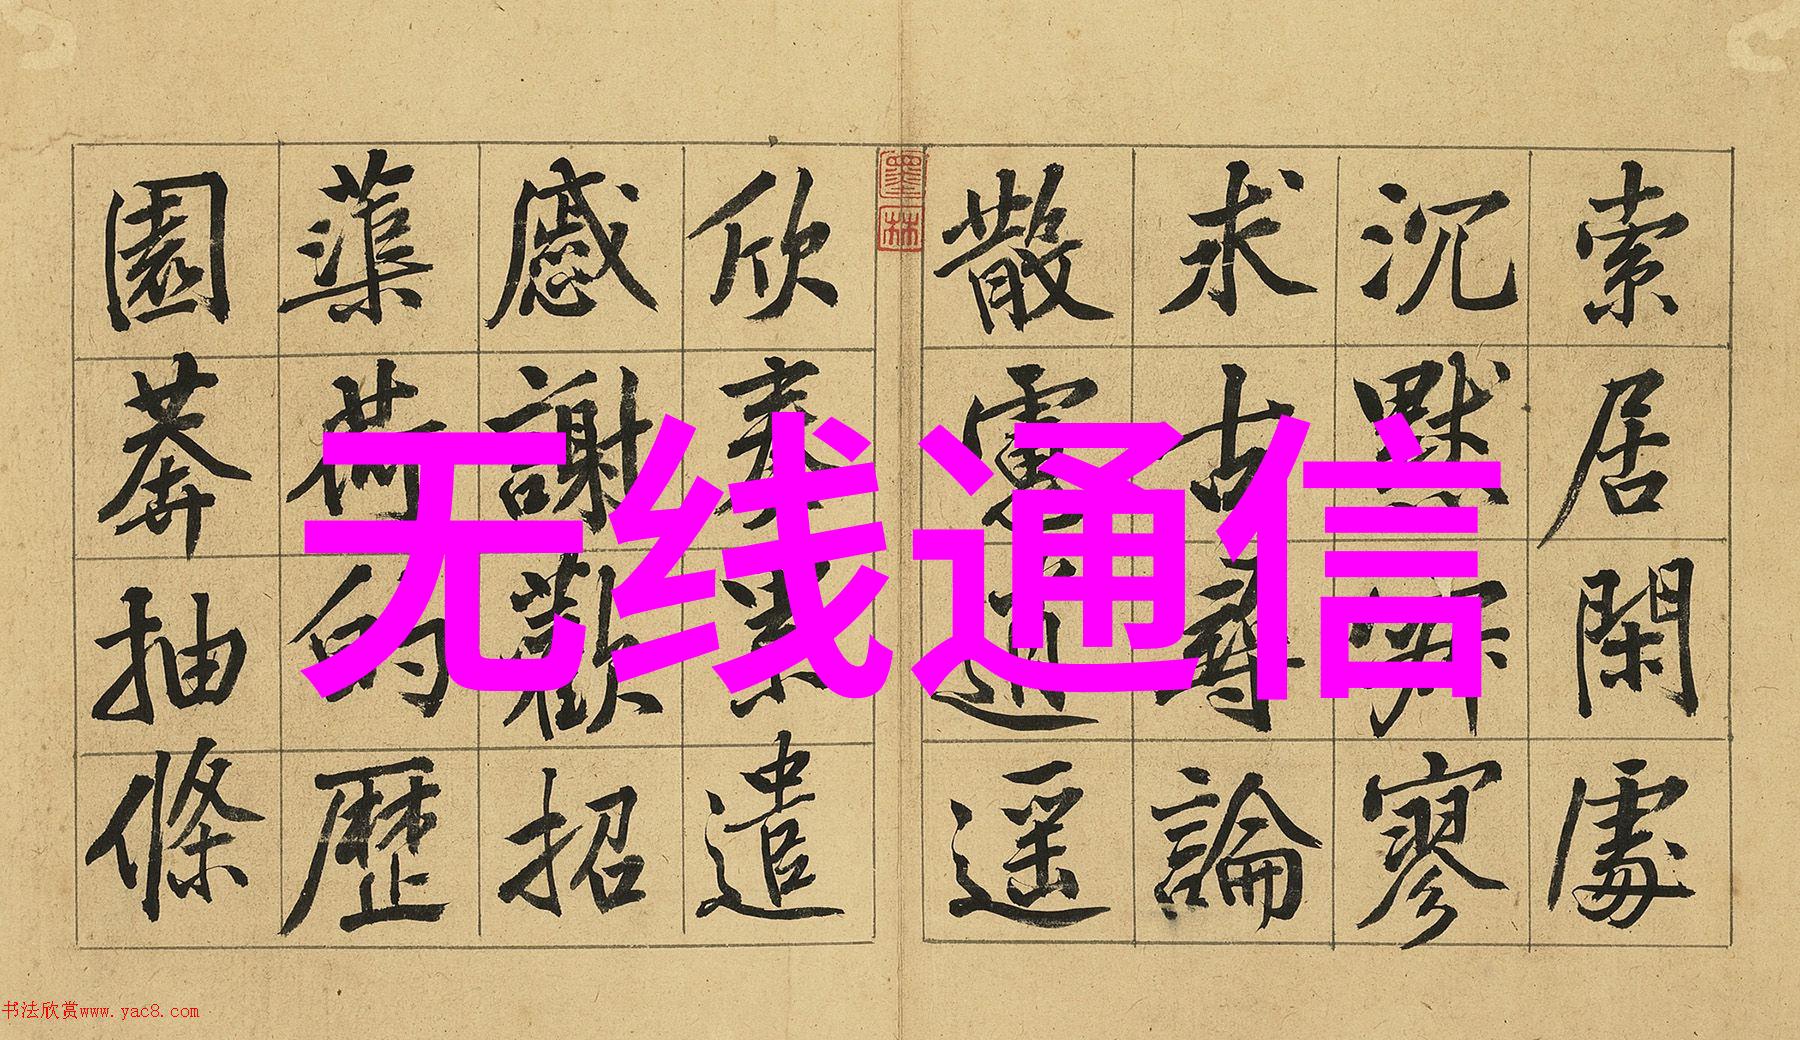 索居閑處
沉默寂寥
求古尋論
散慮逍遥
欣奏累遣
慼謝歡招
蕖荷的歷
園莽抽條
墨林
无线通信
书法欣赏www.yac8.com